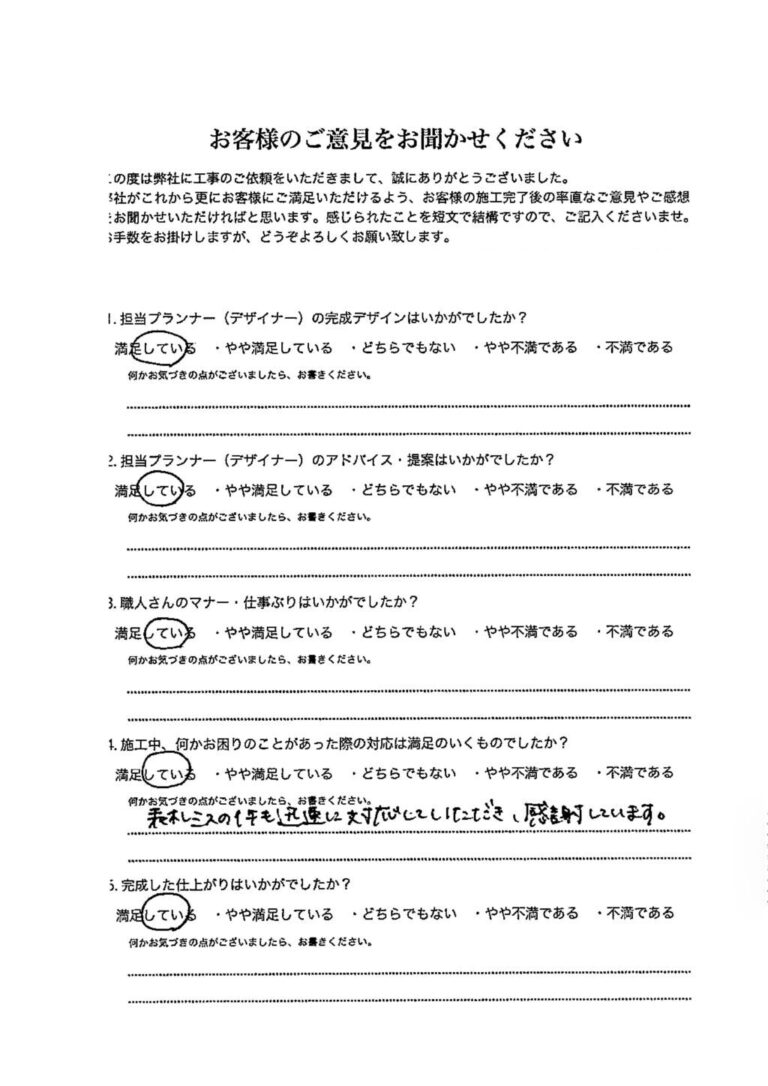 お客様のご意見をお聞かせください
この度は弊社に工事のご依頼をいただきまして、誠にありがとうございました。
弊社がこれから更にお客様にご満足いただけるよう、お客様の施工完了後の率直なご意見やご感想
をお聞かせいただければと思います。感じられたことを短文で結構ですので、ご記入くださいませ。
お手数をお掛けしますが、どうぞよろしくお願い致します。
1. 担当プランナー（デザイナー）の完成デザインはいかがでしたか？
満足している ・やや満足している ・どちらでもない ・やや不満である ・不満である
何かお気づきの点がございましたら、お書きください。
2. 担当プランナー（デザイナー）のアドバイス・提案はいかがでしたか？
満足している ・やや満足している ・どちらでもない ・やや不満である ・不満である
何かお気づきの点がございましたら、お書きください。
3. 職人さんのマナー・仕事ぶりはいかがでしたか？
満足している ・やや満足している ・どちらでもない ・やや不満である ・不満である
何かお気づきの点がございましたら、お書きください。
4. 施工中、何かお困りのことがあった際の対応は満足のいくものでしたか？
満足している ・やや満足している ・どちらでもない ・やや不満である ・不満である
何かお気づきの点がございましたら、お書きください。
表札ミスの件も迅速に対応していただき、感謝しています。
5. 完成した仕上がりはいかがでしたか？
満足している ・やや満足している ・どちらでもない ・やや不満である ・不満である
何かお気づきの点がございましたら、お書きください。